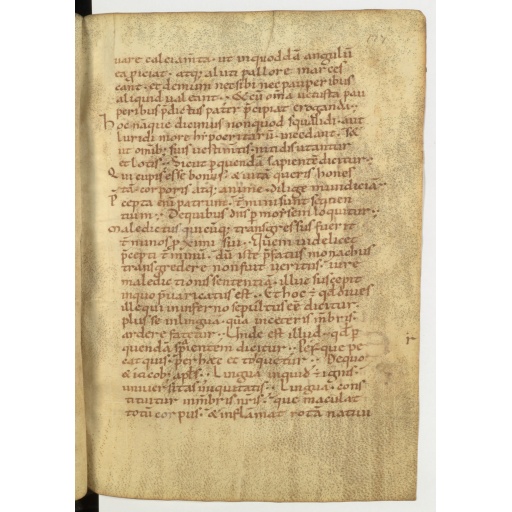 uare calciam̄ta · ut inquoddā angulū
ea p̄iciat · atq; aluti pallore marces
cant · et demum nec sibi nec pauperibus
aliquid ualeant · Sz cū om̄ia uetusta pau
peribus p̄dictus pat̄r p̄cipiat eroganda ·
hoc naq; dicimus non quod squalidi · aut
luridi more hipocritarū incedant · sz
ut omib; suis uestim̄tis nitidis utantur
et lotis · Sicut p̄ quendā sapientē dicitur ·
Qui cupis esse bonus · & uitā queris hones
tā · corporis atq; anime · dilige mundiciā ·
Pcepta eni patrum · t̄minisunt sequen
tium · De quibus dn̄s p̄ moysem loquitur ·
maledictus quicūq; transgressus fuerit
t̄minos p̄ximi sui · Quem uidelicet
p̄cepti t̄minū · dū iste p̄fatus monachus
transgredere non fuit ueritus · iure
maledictionis sententiā · illue suscepit
inquo p̄uaricatus est · Et hoc ē qd̄ diues
ille qui in inferno sepultus eē dicitur ·
plus se in lingua · quā in ceteris m̄bris ·
ardere fatetur · Unde est illud · qd̄ p̄
quendā sapientem dicitur · Per que pec
cat quis · per haec et torquetur · De quo
& iacob; apłs · Lingua inquid ē ignis ·
uniuersitas iniquitatis · Lingua cons
tituitur in m̄bris nr̄is · que maculat
totū corpus · & inflāmat rotā natiui